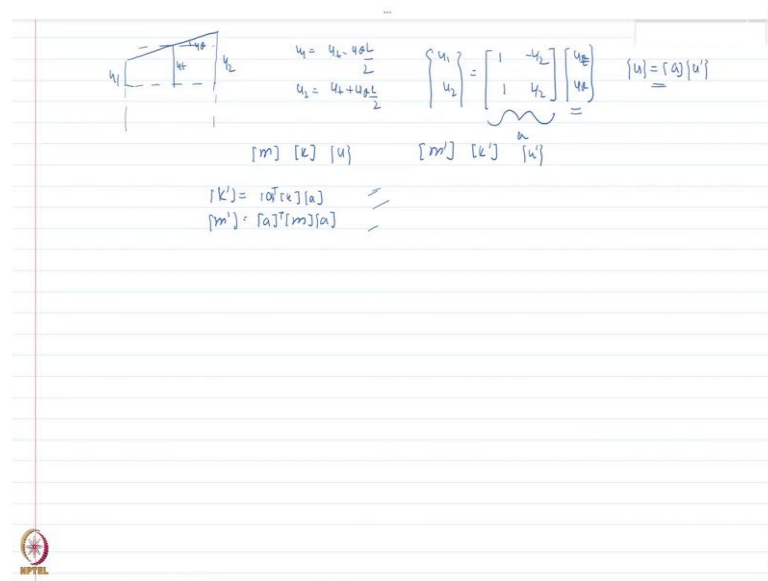 u₁ uₜ uθ u₂
u₁ = uₜ - uθ L/2
u₂ = uₜ + uθ L/2
{u₁ u₂} = [1 -L/2 1 L/2] {uₜ uθ} {u} = [a] {u'}
a
[m] [k] {u} [m'] [k'] {u'}
[k'] = [a]ᵀ[k][a]
[m'] = [a]ᵀ[m][a]
NPTEL